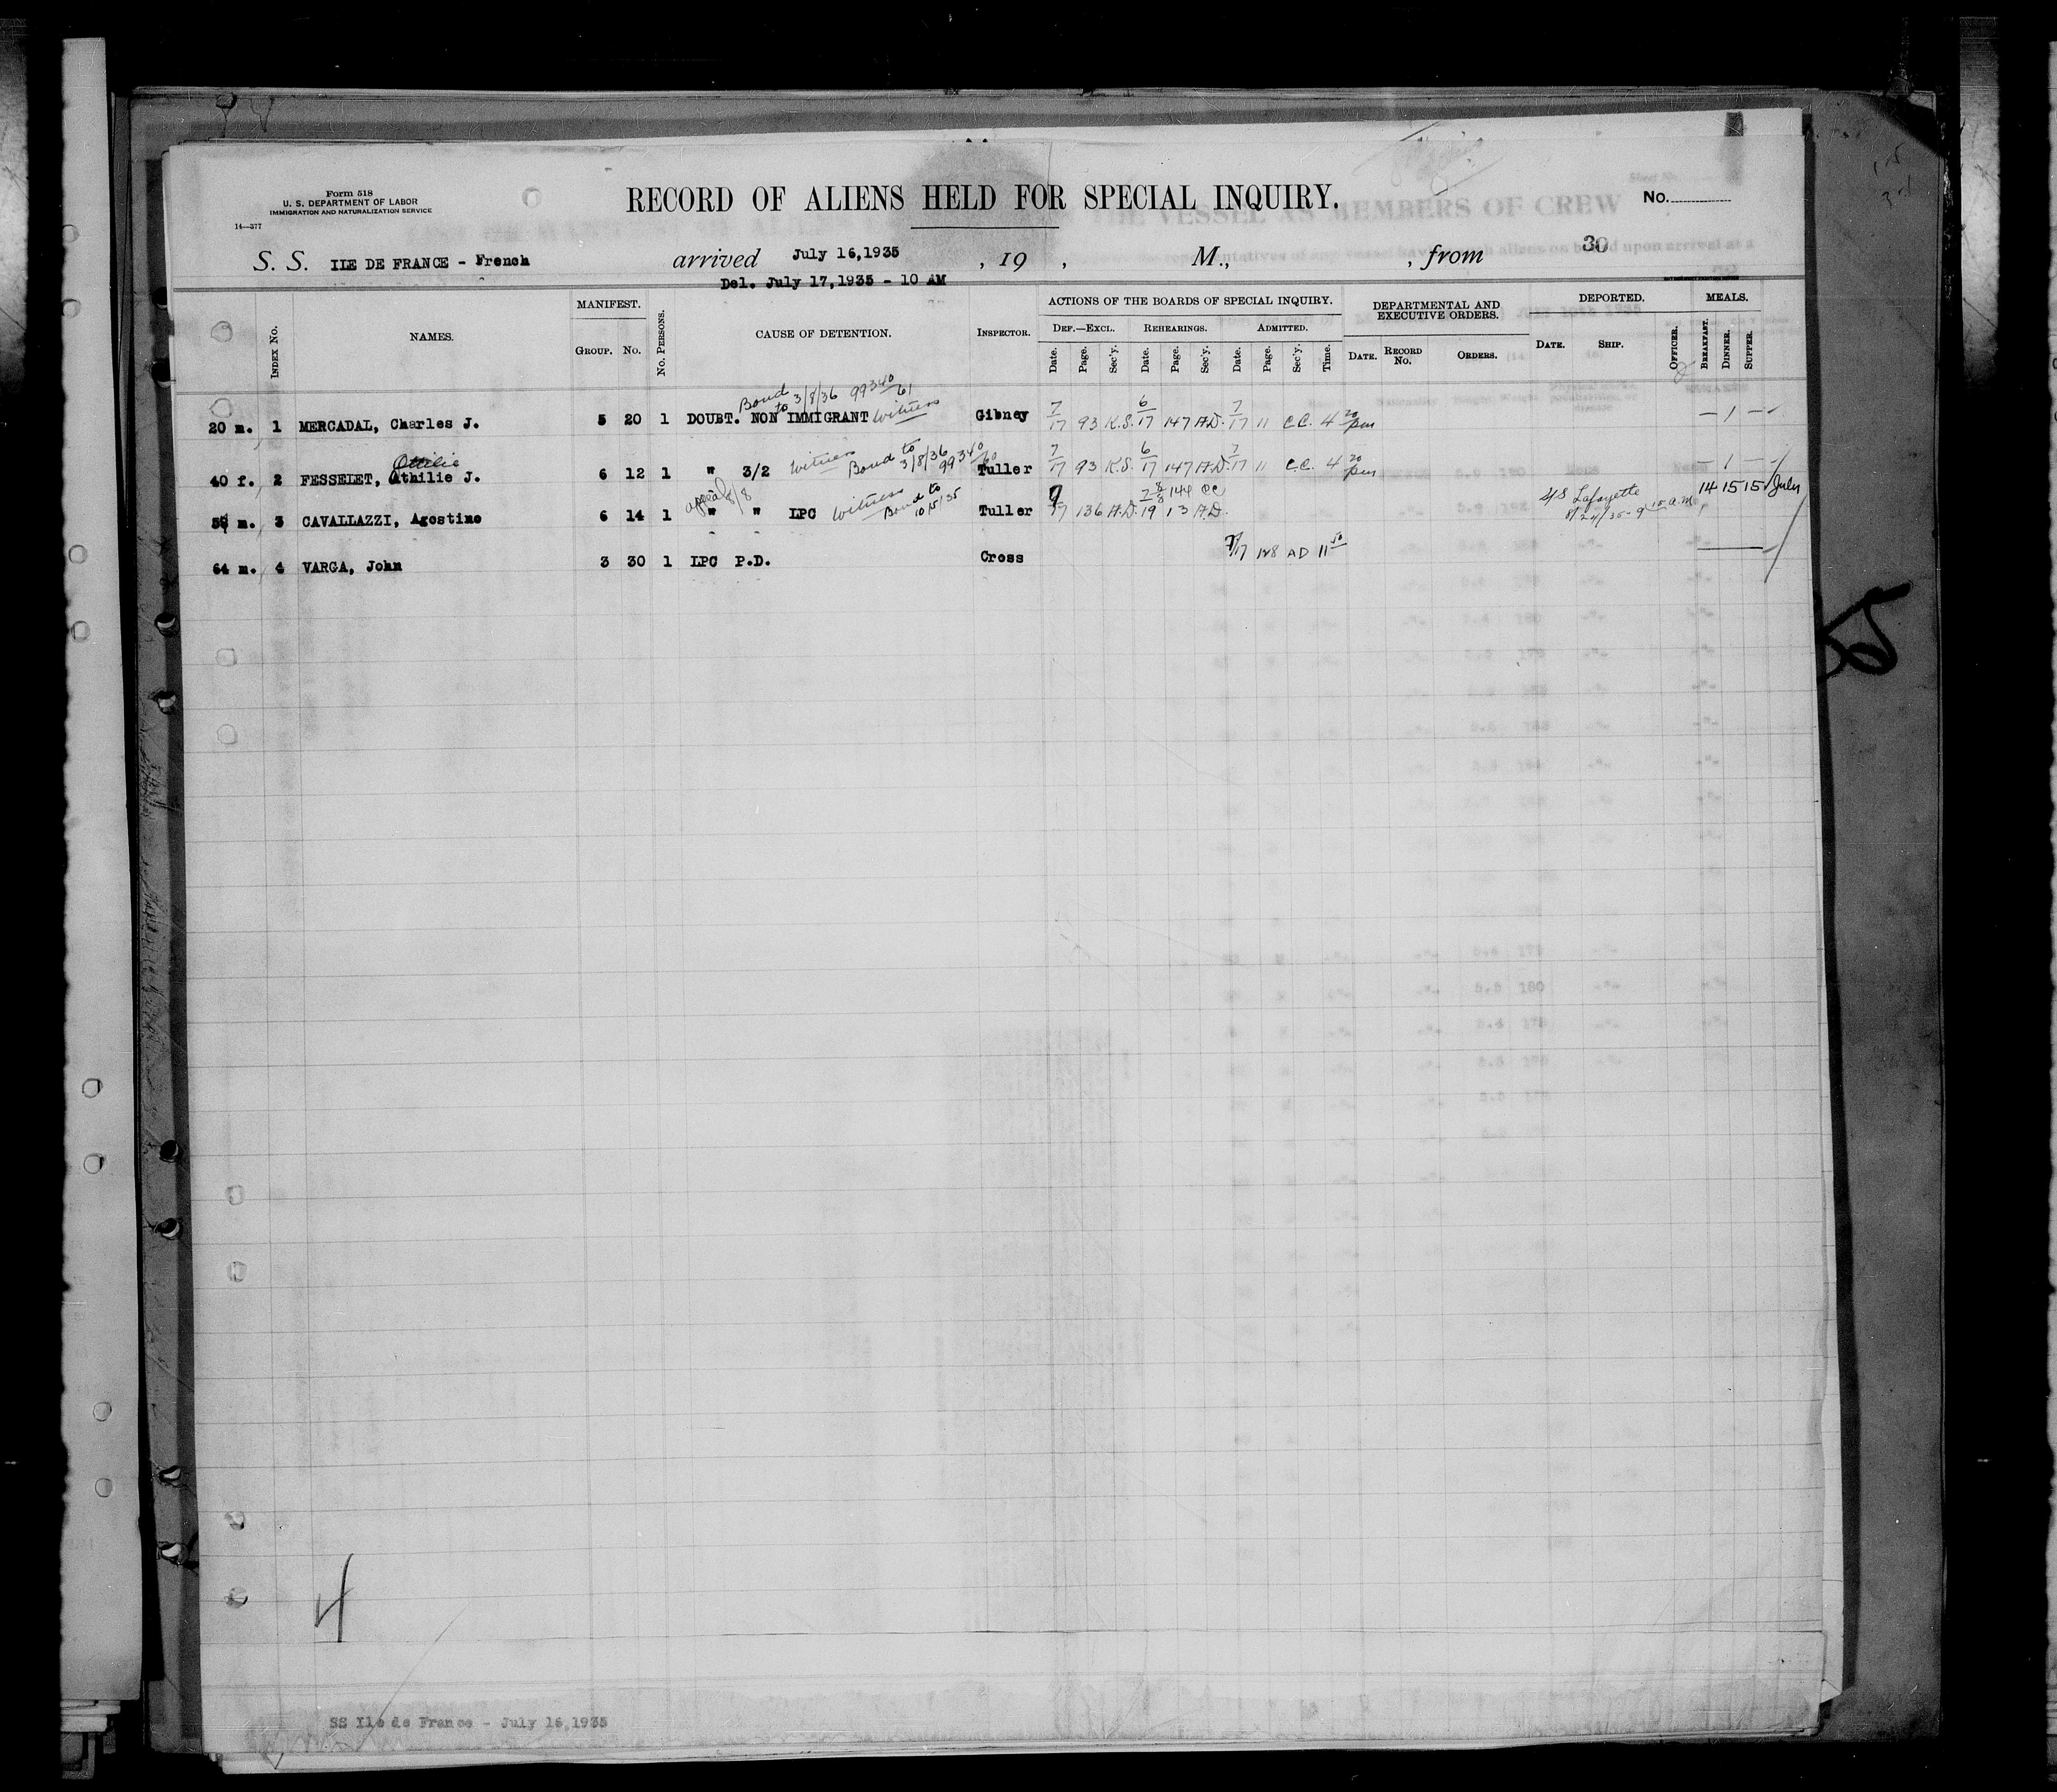 Form 518
U. S. DEPARTMENT OF LABOR
IMMIGRATION AND NATURALIZATION SERVICE
14—377
RECORD OF ALIENS HELD FOR SPECIAL INQUIRY.
No.
S. S. ILE DE FRANCE - French arrived July 16,1935 , 19 , M., , from 30
Del. July 17,1935 - 10 AM
INDEX No. NAMES. MANIFEST. GROUP. No. No. PERSONS. CAUSE OF DETENTION. INSPECTOR.
ACTIONS OF THE BOARDS OF SPECIAL INQUIRY.
DEF.—EXCL. REHEARINGS. ADMITTED.
Date. Page. Sec'y. Date. Page. Sec'y. Date. Page. Sec'y. Time.
DEPARTMENTAL AND EXECUTIVE ORDERS.
DATE. RECORD No. ORDERS.
DEPORTED.
DATE. SHIP. OFFICER.
MEALS.
BREAKFAST. DINNER. SUPPER.
Bond to 3/8/36 99340/61
20 m. 1 MERCADAL, Charles J. 5 20 1 DOUBT. NON IMMIGRANT Witness Gibney 7/17 93 K.S. 6/17 147 A.D. 7/17 11 C.C. 4 20 pm — 1 —
Ottilie
40 f. 2 FESSELET, Athilie J. 6 12 1 " 3/2 Witness Bond to 3/8/36 99340/60 Tuller 7/17 93 K.S. 6/17 147 A.D. 7/17 11 C.C. 4 20 pm — 1 —
appeal 8/8
m. 3 CAVALLAZZI, Agostino 6 14 1 " " LPC Witness Bond to 10/15/35 Tuller 17 136 A.D. 19 13 A.D. 8/3 144 CC Lafayette 14 15 15 July
64 m. 4 VARGA, John 3 30 1 LPC P.D. Cross 7/17 128 AD 11 50
4
SS Ile de France - July 16,1935